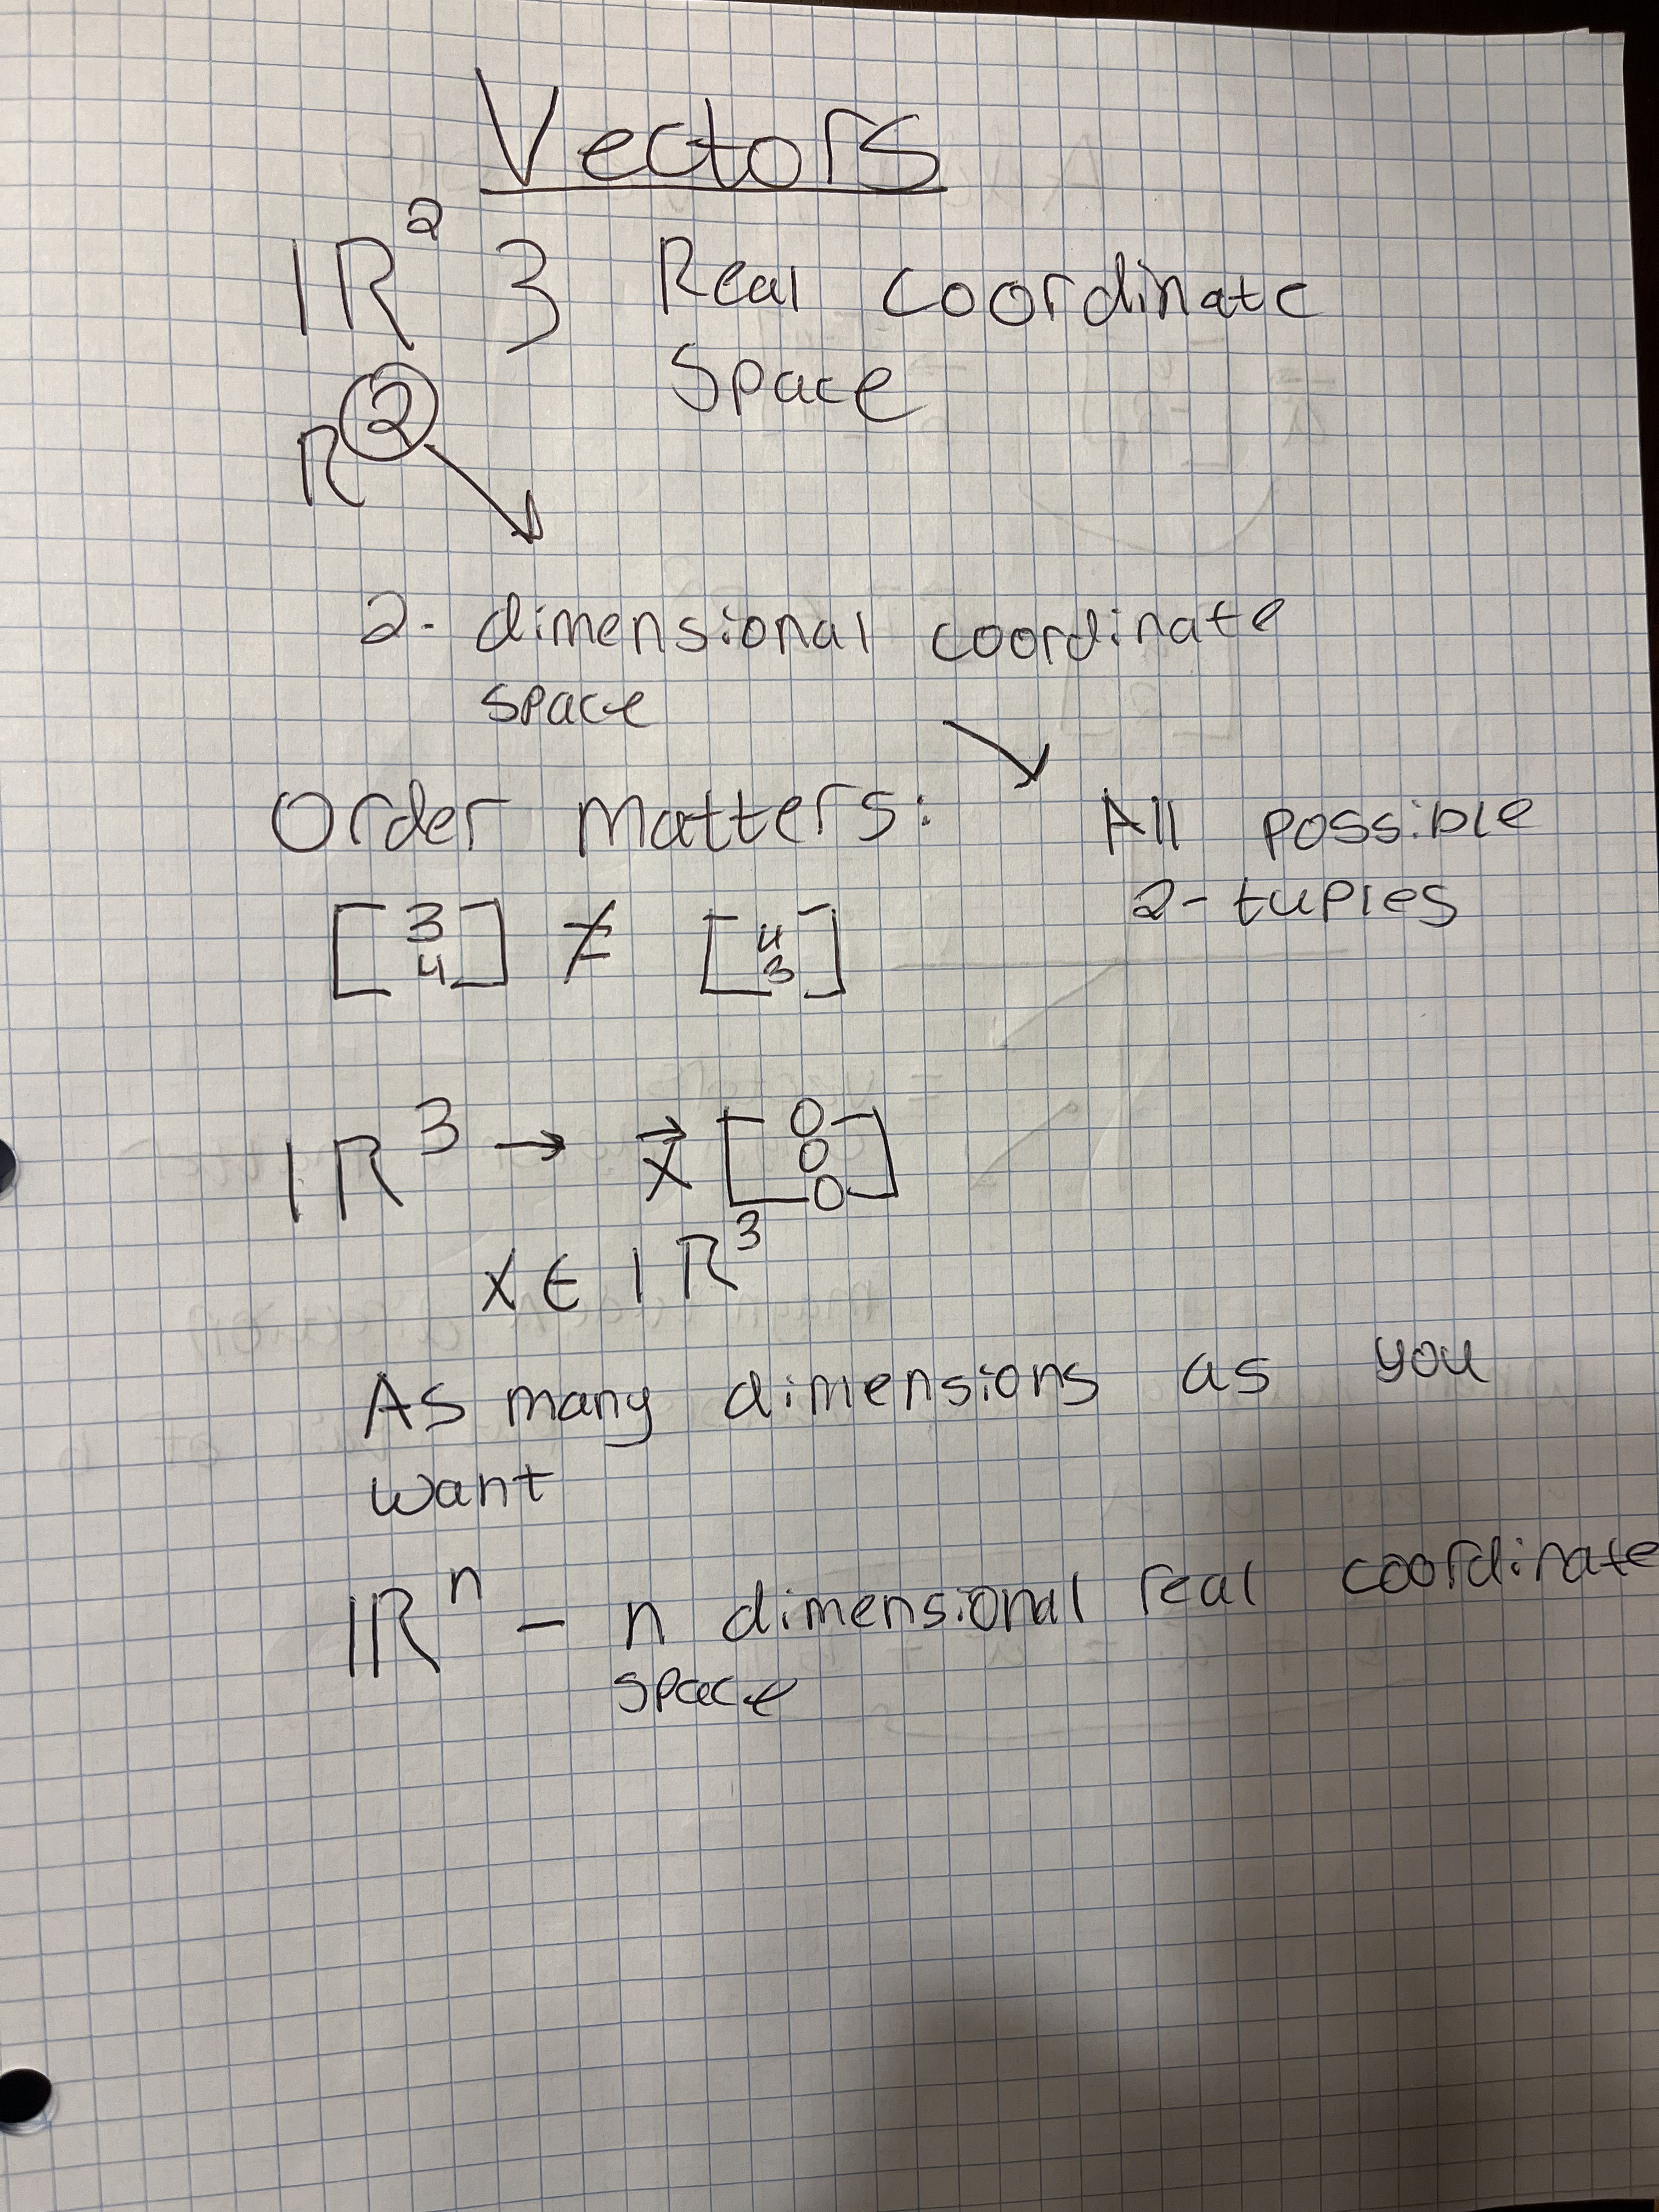 Vectors
ℝ² } Real coordinate
Space
R²
2- dimensional coordinate
space
Order matters:
All possible
2-tuples
[3 4] ≠ [4 3]
ℝ³ → x⃗ [0 0 0]
x ∈ ℝ³
As many dimensions as you
want
ℝⁿ - n dimensional real coordinate
space